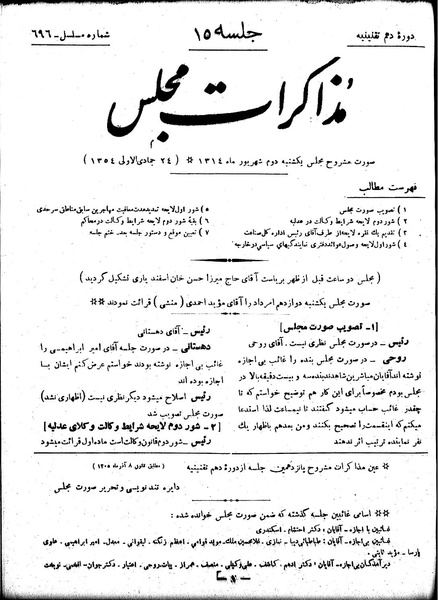 دورهٔ دهم تقنینیه
جلسه ۱۵
شماره مسلسل - ۶۹۶
مذاکرات مجلس
صورت مشروح مجلس یکشنبه دوم شهریور ماه ۱۳۱۴ * ( ۲۴ جمادی الاولی ۱۳۵۴ )
فهرست مطالب
۱ ) تصویب صورت مجلس
۲ ) شور دوم لایحه شرایط وکالت در عدلیه
۳ ) تقدیم یک فقره لایحه از طرف آقای رئیس اداره کل صناعت
۴ ) شور اول لایحه وصول عوائد دفتری نمایندگیهای سیاسی در خارجه
۵ ) شور اول لایحه تمدید مدت معافیت مهاجرین سابق مناطق سرحدی
۶ ) بقیه شور دوم لایحه شرایط وکالت در محاکم
۷ ) تعیین موقع و دستور جلسه بعد ـ ختم جلسه
( مجلس دو ساعت قبل از ظهر بریاست آقای حاج میرزا حسن خان اسفندیاری تشکیل گردید )
صورت مجلس یکشنبه دوازدهم امرداد را آقای مؤید احمدی ( منشی ) قرائت نمودند **
[ ۱- تصویب صورت مجلس ]
رئیس ـ در صورت مجلس نظری نیست . آقای روحی
روحی ـ در صورت مجلس بنده را غائب بی اجازه
نوشته اند آقایان مباشرین شاهدند بنده سه و بیست دقیقه بالا در
مجلس بودم مخصوصاً برای این کار هم توضیح خواستم که تا
چقدر غائب حساب میشود گفتند تا نیمساعت لذا استدعا
میکنم که اینقسمت را تصحیح بکنند و من بعد هم باظهار یک
نفر نماینده ترتیب اثر ندهند
رئیس ـ آقای دهستانی
دهستانی ـ در صورت جلسه آقای امیر ابراهیمی را
غائب بی اجازه نوشته بودند خواستم عرض کنم ایشان با
اجازه بوده اند
رئیس ـ اصلاح میشود دیگر نظری نیست (اظهاری نشد)
صورت مجلس تصویب شد
[ ۲ - شور دوم لایحه شرایط وکالت و کلای عدلیه ]
رئیس ـ شور دوم قانون وکالت است ماده اول قرائت میشود
* عین مذاکرات مشروح پانزدهمین جلسه از دورهٔ دهم تقنینیه
(مطابق قانون ۸ آذر ماه ۱۳۰۵)
دایره تند نویسی و تحریر صورت مجلس
** اسامی غائبین جلسه گذشته که ضمن صورت مجلس خوانده شده :
غائبین با اجازه ـ آقایان : دکتر احتشام . اسکندری
غائبین بی اجازه ـ آقایان : طباطبائی دیبا